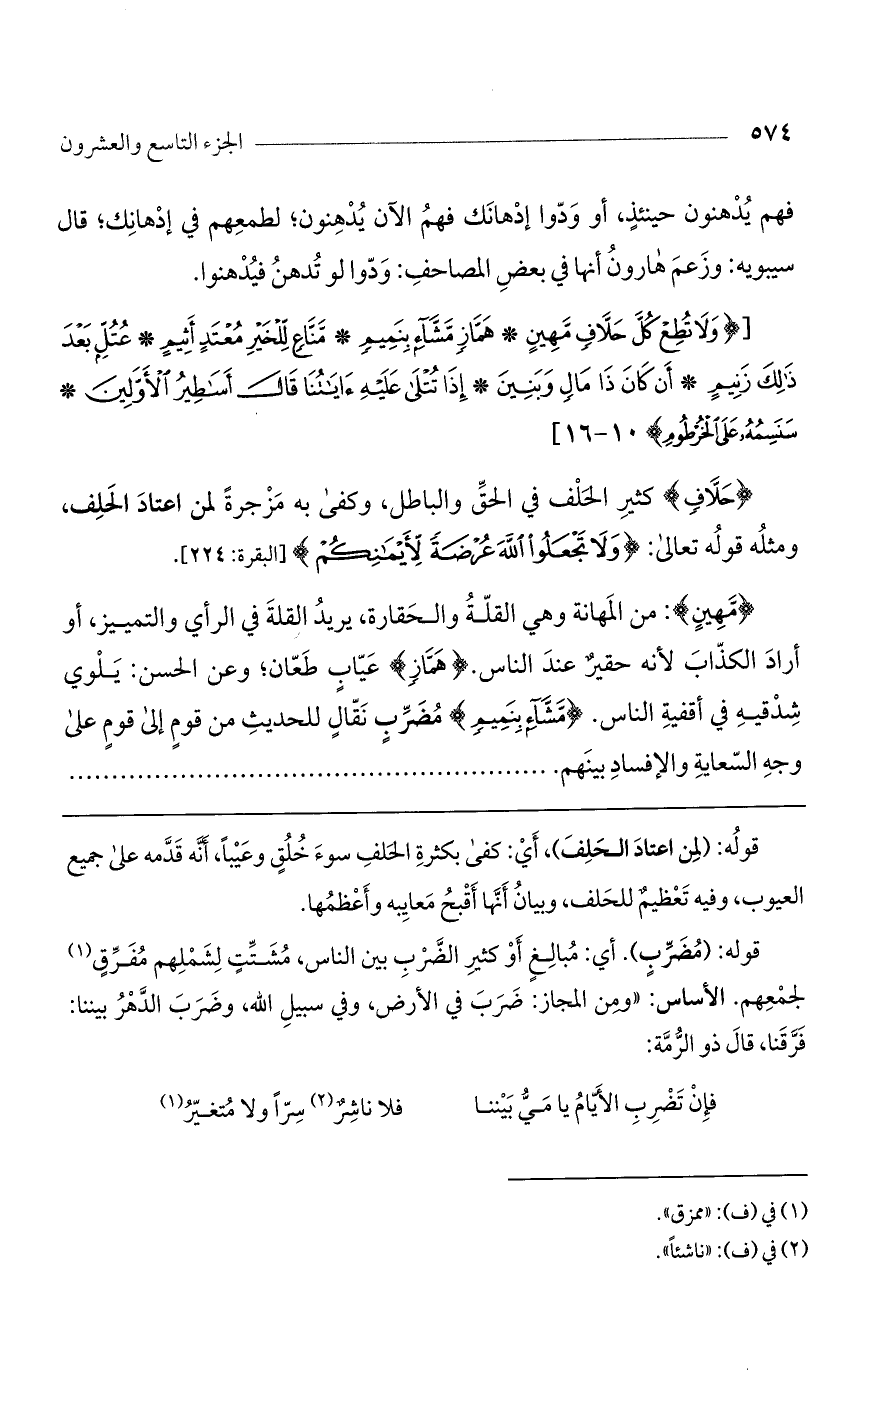 ٥٧٤ الجزء التاسع والعشرون
فهم يُدْهنون حينئذٍ، أو وَدّوا إدْهانَك فهمُ الآن يُدْهِنون؛ لطمعِهم في إدْهانِك؛ قال
سيبويه: وزَعمَ هٰارونُ أنها في بعضِ المصاحفِ: وَدّوا لو تُدهنُ فيُدْهنوا.
[﴿وَلَا تُطِعْ كُلَّ حَلَّافٍ مَّهِينٍ * هَمَّازٍ مَّشَّآءٍ بِنَمِيمٍ * مَّنَّاعٍ لِّلْخَيْرِ مُعْتَدٍ أَثِيمٍ * عُتُلٍّ بَعْدَ
ذَٰلِكَ زَنِيمٍ * أَن كَانَ ذَا مَالٍ وَبَنِينَ * إِذَا تُتْلَىٰ عَلَيْهِ ءَايَٰتُنَا قَالَ أَسَٰطِيرُ ٱلْأَوَّلِينَ *
سَنَسِمُهُۥ عَلَى ٱلْخُرْطُومِ﴾ ١٠-١٦]
﴿حَلَّافٍ﴾ كثيرِ الحَلْف في الحقِّ والباطل، وكفىٰ به مَزْجرةً لمن اعتادَ الحَلِف،
ومثلُه قولُه تعالىٰ: ﴿وَلَا تَجْعَلُوا۟ ٱللَّهَ عُرْضَةً لِّأَيْمَٰنِكُمْ﴾ [البقرة: ٢٢٤].
﴿مَّهِينٍ﴾: من المَهانة وهي القلّةُ والحَقارة، يريدُ القلةَ في الرأي والتمييز، أو
أرادَ الكذّابَ لأنه حقيرٌ عندَ الناس. ﴿هَمَّازٍ﴾ عَيّابٍ طَعّان؛ وعن الحسن: يَلْوي
شِدْقيهِ في أقفيةِ الناس. ﴿مَّشَّآءٍ بِنَمِيمٍ﴾ مُضَرِّبٍ نَقّالٍ للحديثِ من قومٍ إلىٰ قومٍ علىٰ
وجهِ السّعايةِ والإفسادِ بينَهم. ........................................................
قولُه: (لمن اعتادَ الحَلِفَ)، أَيْ: كفىٰ بكثرةِ الحَلفِ سوءَ خُلُقٍ وعَيْباً، أنَّه قَدَّمه علىٰ جميع
العيوب، وفيه تَعْظيمٌ للحَلف، وبيانُ أنَّها أقْبحُ مَعايِبه وأَعْظمُها.
قوله: (مُضَرِّبٍ). أي: مُبالِغٍ أوْ كثيرِ الضَّرْبِ بين الناس، مُشَتِّتٍ لِشَمْلِهم مُفَرِّقٍ(١)
لجمْعِهم. الأساس: «ومِن المجاز: ضَرَبَ في الأرض، وفي سبيلِ الله، وضَرَبَ الدَّهْرُ بيننا:
فَرَّقَنا، قالَ ذو الرُّمَّة:
فإِنْ تَضْرِبِ الأيّامُ يا مَيُّ بَيْننا فلا ناشِرٌ(٢) سِرّاً ولا مُتغيّرُ(١)
(١) في (ف): «ممزق».
(٢) في (ف): «ناشئاً».